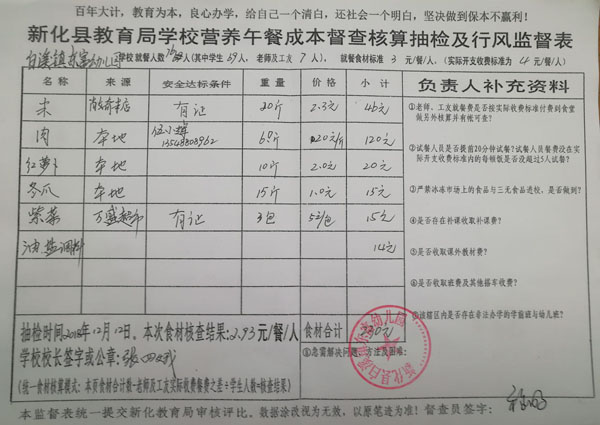 百年大计，教育为本，良心办学，给自己一个清白，还社会一个明白，坚决做到保本不赢利！
新化县教育局学校营养午餐成本督查核算抽检及行风监督表
白溪镇 幼儿园 学校就餐人数 (其中学生69人，老师及工友7人)，就餐食材标准3元/餐/人，(实际开支收费标准为4元/餐/人)
名称 来源 安全达标条件 重量 价格 小计 负责人补充资料
米 有证 20斤 2.3元 46元
肉 本地 13548808962 6斤 20元/斤 120元
红萝卜 本地 10斤 2.0元 20元
冬瓜 本地 15斤 1.0元 15元
紫菜 万盛超市 有证 3包 5元/包 15元
油盐调料 14元
①老师、工友就餐费是否按实际收费标准付费到食堂做另外核算并有帐可查？
②试餐人员是否提前20分钟试餐？试餐人员餐费没在实际开支收费标准内的每顿饭是否没超过5人试餐？
③严禁冰冻市场上的食品与三无食品进校，是否做到？
④是否存在补课收取补课费？
⑤是否收取课外教材费？
⑥是否收取班费及其他搭车收费？
⑦该辖区内是否存在非法办学的学前班与幼儿班？
抽检时间2018年12月12日。本次食材核查结果：2.93元/餐/人 食材合计 230元
学校校长签字或公章：张
①急需解决问题、方法及困难：
(统一食材核算模式：本页食材合计数-老师及工友实际收费餐费之差÷学生人数=核查结果)
本监督表统一提交新化教育局审核评比。数据涂改视为无效，以原笔迹为准！督查员签字：